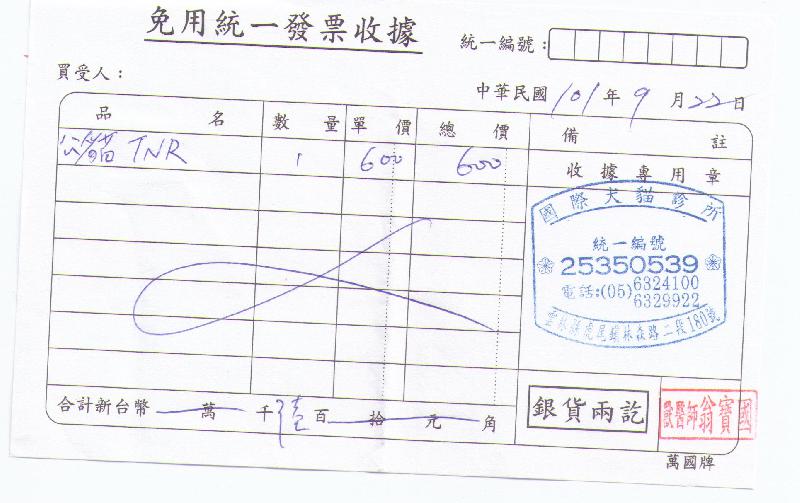 免用統一發票收據
統一編號:
買受人:
中華民國 101 年 9 月 22 日
品 名 數 量 單 價 總 價 備 註
公貓 TNR 1 600 600
收據專用章
國際犬貓診所
統一編號
25350539
電話:(05)6324100
6329922
雲林縣虎尾鎮林森路二段180號
合計新台幣 萬 千 百 拾 元 角
銀貨兩訖
獸醫師翁寶國
萬國牌